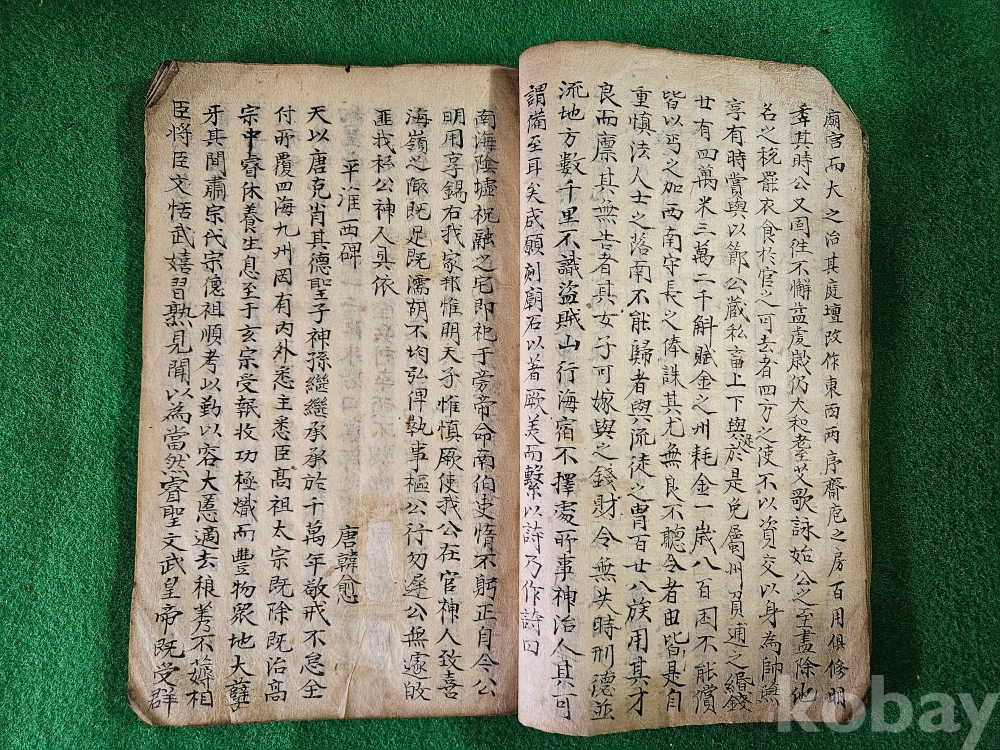 廟宮而大之治其庭壇改作東西兩序齋庖之房百用俱修明
年其時公又固往不懈益虔歲仍大和耋艾歌詠始公之至盡除他
名之稅罷衣食於官之可去者四方之使不以資交以身為帥燕
享有時賞與以節公藏私畜上下與足於是免屬州負逋之緡錢
廿有四萬米三萬二千斛賦金之州耗金一歲八百困不能償
皆以丐之加西南守長之俸誅其尤無良不聽令者由皆是自
重慎法人士之落南不能歸者與流徒之胄百廿八族用其才
良而廩其無告者其女子可嫁與之錢財令無失時刑德並
流地方數千里不識盜賊山行海宿不擇處所事神治人其可
謂備至耳矣咸願刻廟石以著厥美而繫以詩乃作詩曰
南海陰墟祝融之宅即祀于旁帝命南伯吏惰不躬正自今公
明用享錫右我家邦惟明天子惟慎厥使我公在官神人致喜
海嶺之陬既足既濡胡不均弘俾執事樞公行勿遲公無遽歸
匪我私公神人具依
平淮西碑
唐韓愈
天以唐克肖其德聖子神孫繼繼承承於千萬年敬戒不怠全
付所覆四海九州罔有內外悉主悉臣高祖太宗既除既治高
宗中睿休養生息至于玄宗受報收功極熾而豐物眾地大孽
牙其間肅宗代宗德祖順考以勤以容大慝適去稂莠不薅相
臣將臣文恬武嬉習熟見聞以為當然睿聖文武皇帝既受群
kobay